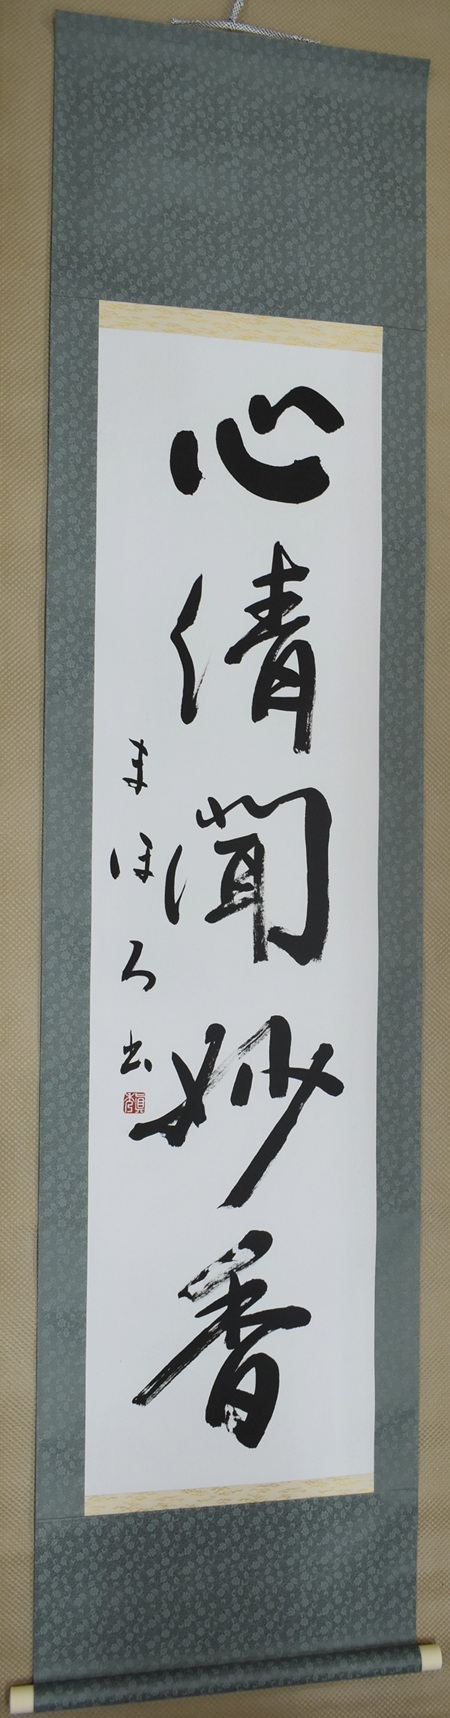 心清聞妙香
まほろ書